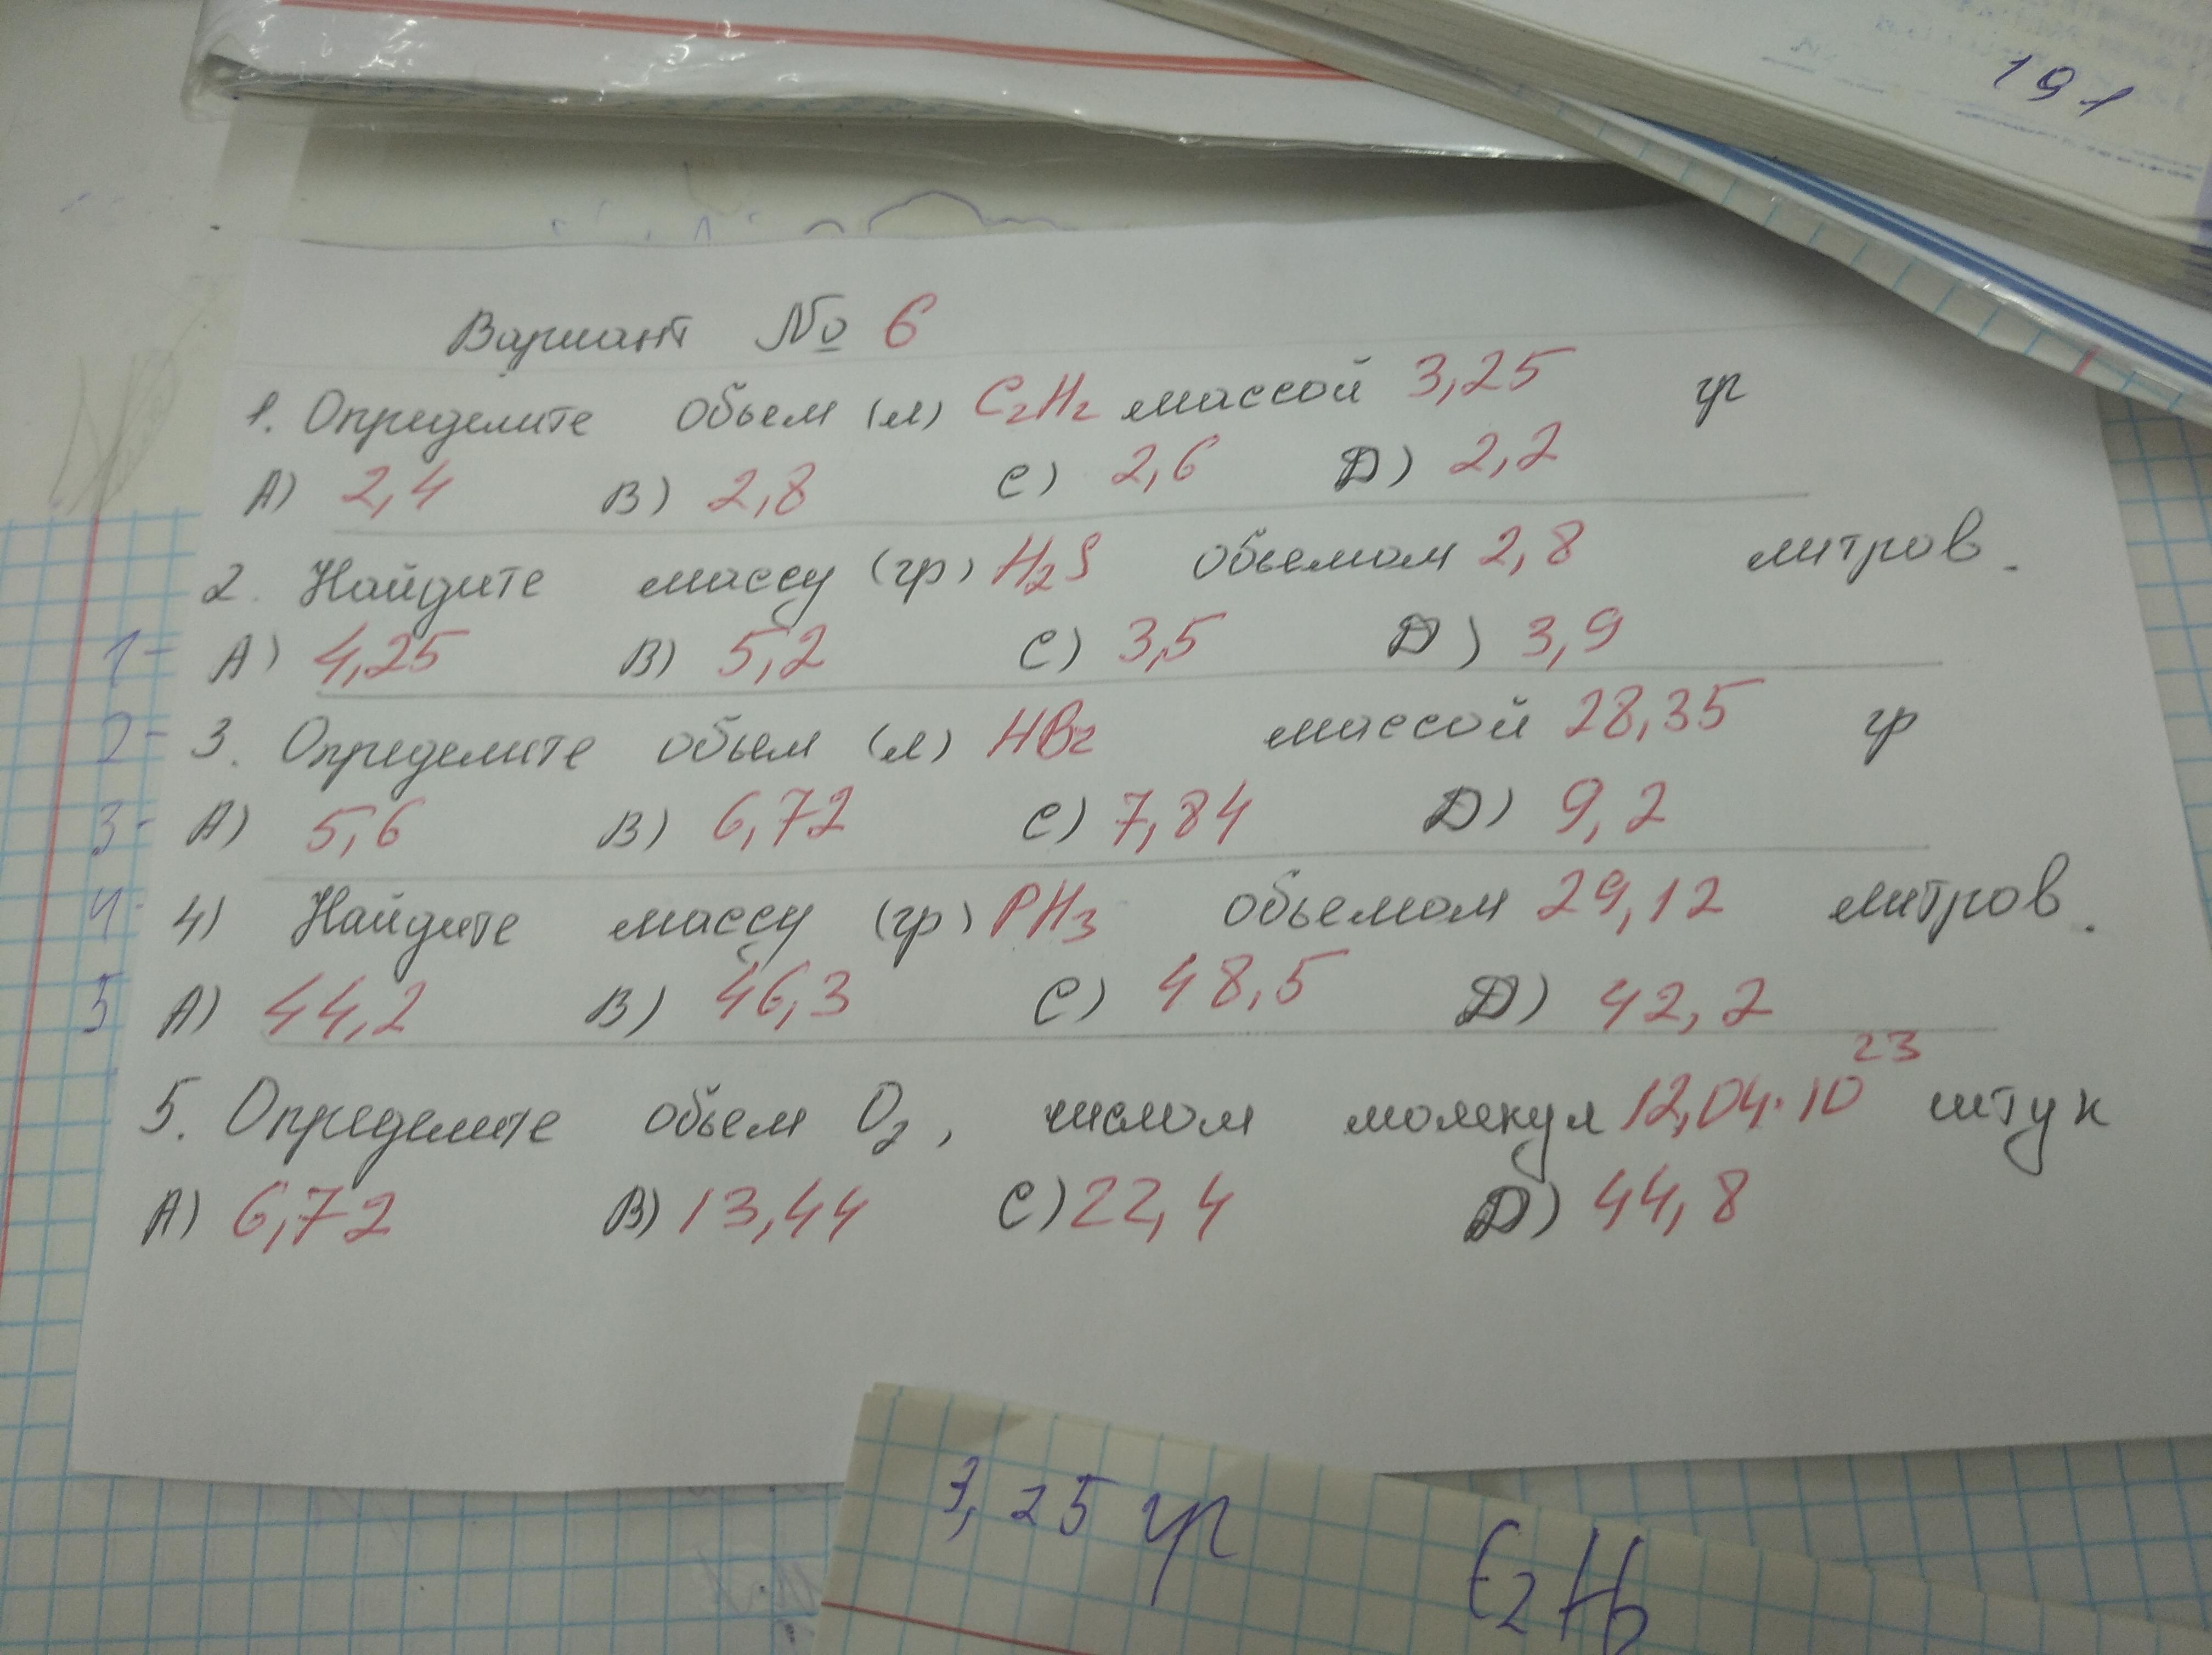 191
Вариант № 6
1. Определите обьем (л) C₂H₂ массой 3,25 гр
A) 2,4 B) 2,8 C) 2,6 D) 2,2
2. Найдите массу (гр) H₂S обьемом 2,8 литров.
1- A) 4,25 B) 5,2 C) 3,5 D) 3,9
2- 3. Определите обьем (л) HBr массой 28,35 гр
3- A) 5,6 B) 6,72 C) 7,84 D) 9,2
4- 4) Найдите массу (гр) PH₃ обьемом 29,12 литров.
5 A) 44,2 B) 46,3 C) 48,5 D) 42,2
5. Определите обьем O₂, числом молекул 12,04·10²³ штук
A) 6,72 B) 13,44 C) 22,4 D) 44,8
3,25 гр C₂H₂